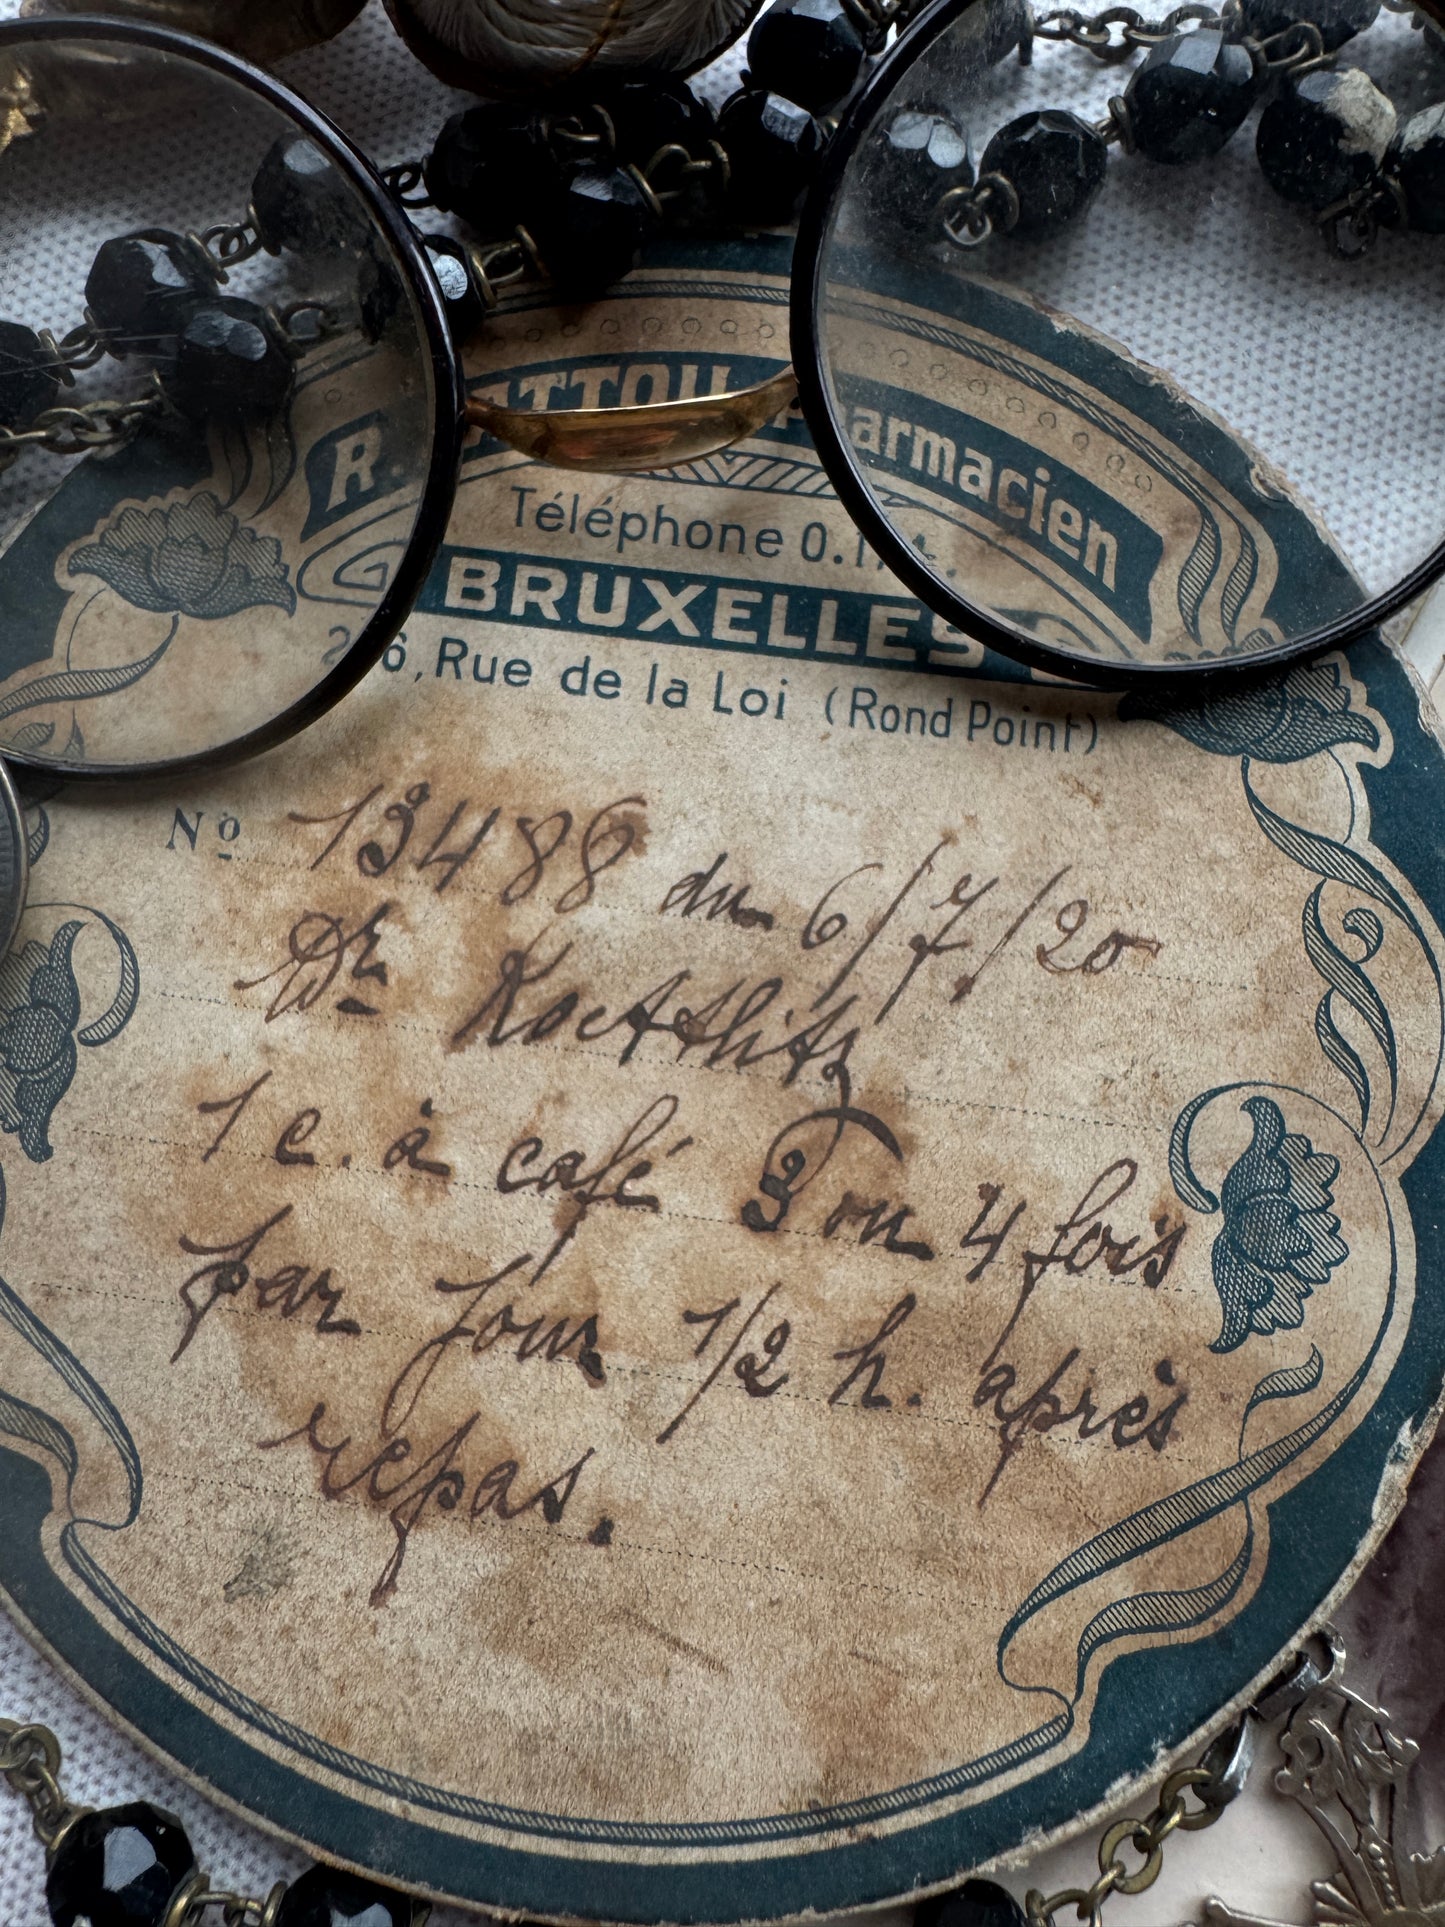 R. Pharmacien
Téléphone
BRUXELLES
Rue de la Loi (Rond Point)
Nº 13488 du 6/7/20
Dr
1 c. à café 3 ou 4 fois
par jour 1/2 h. après
repas.